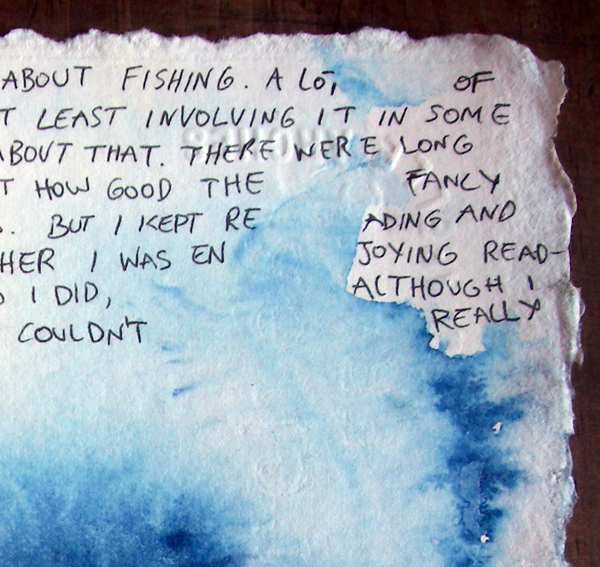 ABOUT FISHING. A LOT, OF
T LEAST INVOLVING IT IN SOME
ABOUT THAT. THERE WERE LONG
T HOW GOOD THE FANCY
. BUT I KEPT RE ADING AND
HER I WAS EN JOYING READ-
I DID, ALTHOUGH I
COULDN'T REALLY